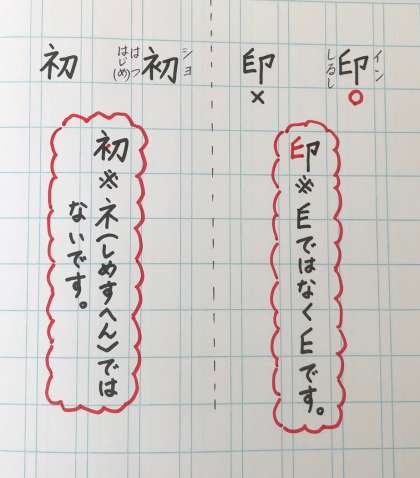 イン
印
しるし
○
印
×
印
※EではなくEです。
ショ
初
はつ
はじ(め)
初
初
※ネ(しめすへん)では
ないです。